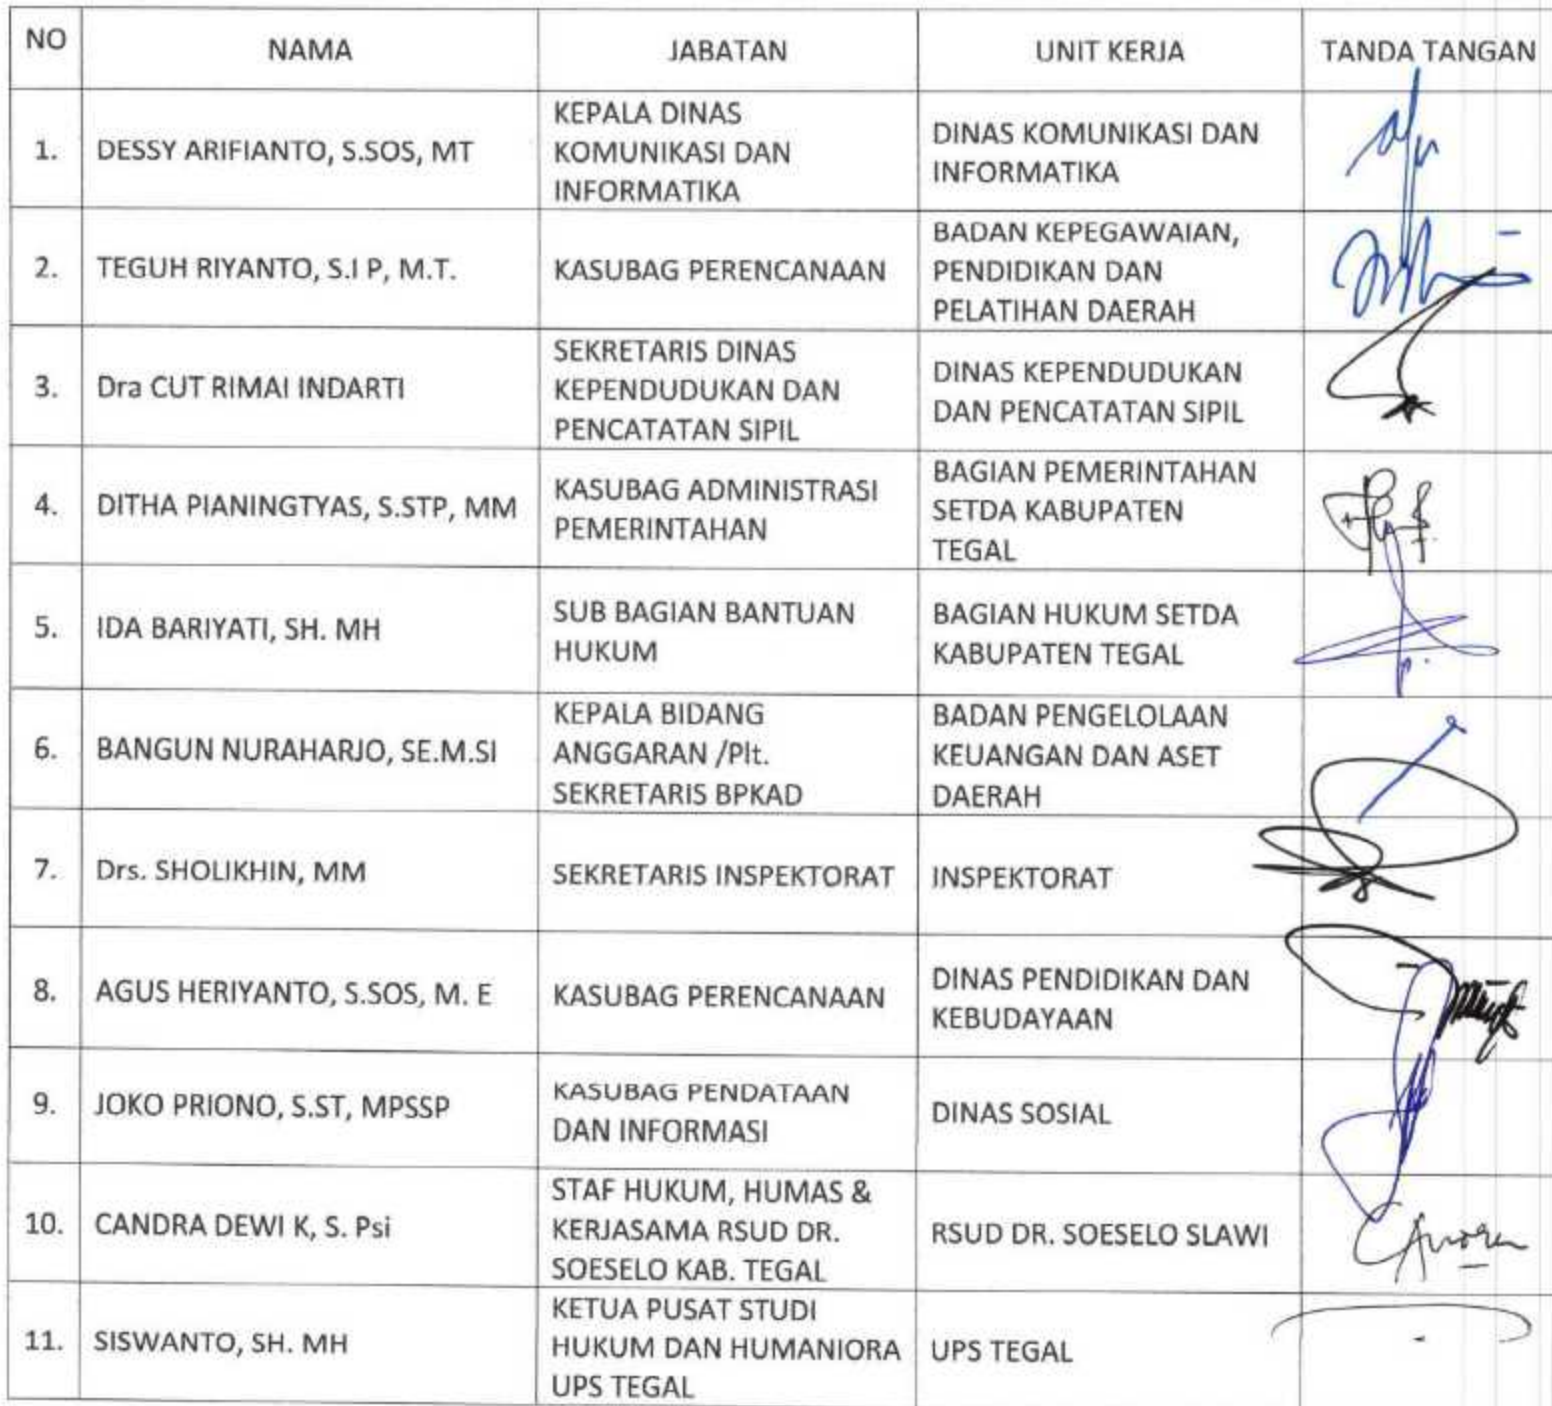 NO NAMA JABATAN UNIT KERJA TANDA TANGAN
1. DESSY ARIFIANTO, S.SOS, MT
KEPALA DINAS
KOMUNIKASI DAN
INFORMATIKA
DINAS KOMUNIKASI DAN
INFORMATIKA
2. TEGUH RIYANTO, S.I P, M.T.
KASUBAG PERENCANAAN
BADAN KEPEGAWAIAN,
PENDIDIKAN DAN
PELATIHAN DAERAH
3. Dra CUT RIMAI INDARTI
SEKRETARIS DINAS
KEPENDUDUKAN DAN
PENCATATAN SIPIL
DINAS KEPENDUDUKAN
DAN PENCATATAN SIPIL
4. DITHA PIANINGTYAS, S.STP, MM
KASUBAG ADMINISTRASI
PEMERINTAHAN
BAGIAN PEMERINTAHAN
SETDA KABUPATEN
TEGAL
5. IDA BARIYATI, SH. MH
SUB BAGIAN BANTUAN
HUKUM
BAGIAN HUKUM SETDA
KABUPATEN TEGAL
6. BANGUN NURAHARJO, SE.M.SI
KEPALA BIDANG
ANGGARAN /Plt.
SEKRETARIS BPKAD
BADAN PENGELOLAAN
KEUANGAN DAN ASET
DAERAH
7. Drs. SHOLIKHIN, MM
SEKRETARIS INSPEKTORAT
INSPEKTORAT
8. AGUS HERIYANTO, S.SOS, M. E
KASUBAG PERENCANAAN
DINAS PENDIDIKAN DAN
KEBUDAYAAN
9. JOKO PRIONO, S.ST, MPSSP
KASUBAG PENDATAAN
DAN INFORMASI
DINAS SOSIAL
10. CANDRA DEWI K, S. Psi
STAF HUKUM, HUMAS &
KERJASAMA RSUD DR.
SOESELO KAB. TEGAL
RSUD DR. SOESELO SLAWI
11. SISWANTO, SH. MH
KETUA PUSAT STUDI
HUKUM DAN HUMANIORA
UPS TEGAL
UPS TEGAL